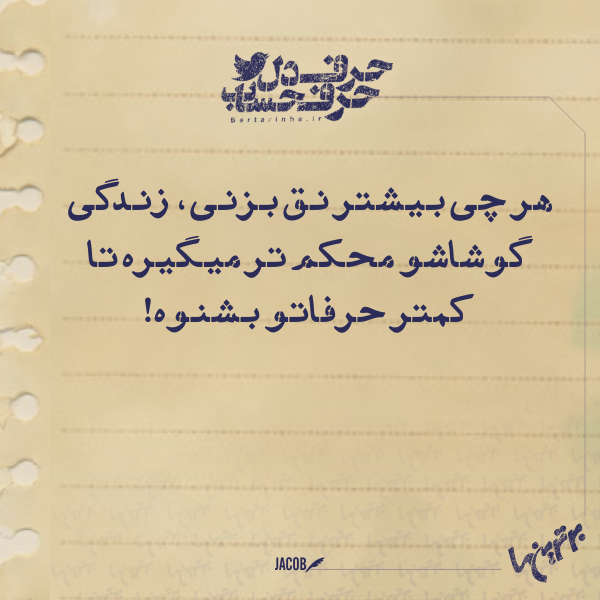 حرف دل
حرف حساب
Bartarinha.ir
هر چی بیشتر نق بزنی، زندگی
گوشاشو محکم تر میگیره تا
کمتر حرفاتو بشنوه!
JACOB
برترینها